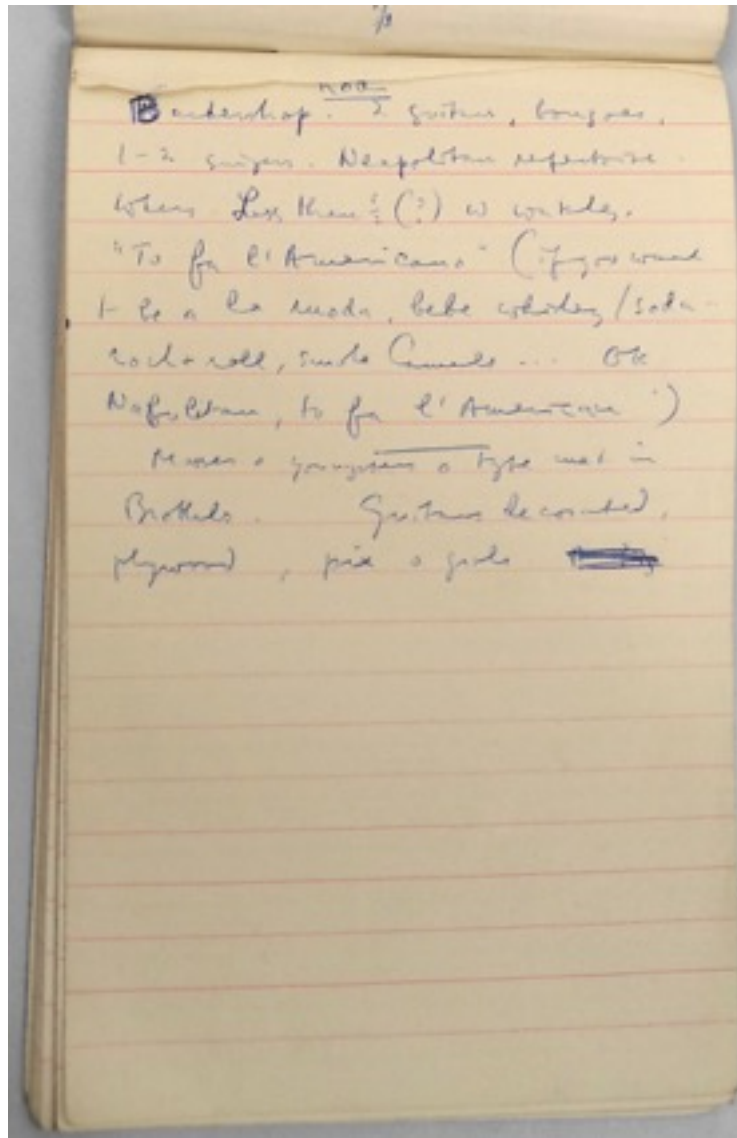 Barbershop. 2 guitars, bongoes,
1-2 singers. Neapolitan repertoire
where Less than (?) w
"To fa l'Americano" (if you want
t be a la moda, bebe whiskey/soda
rock + roll, smoke Camels ... OK
Napoletan, to fa l'American")
youngsters o type met in
Brothels. Guitars decorated,
plywood, pix o girls